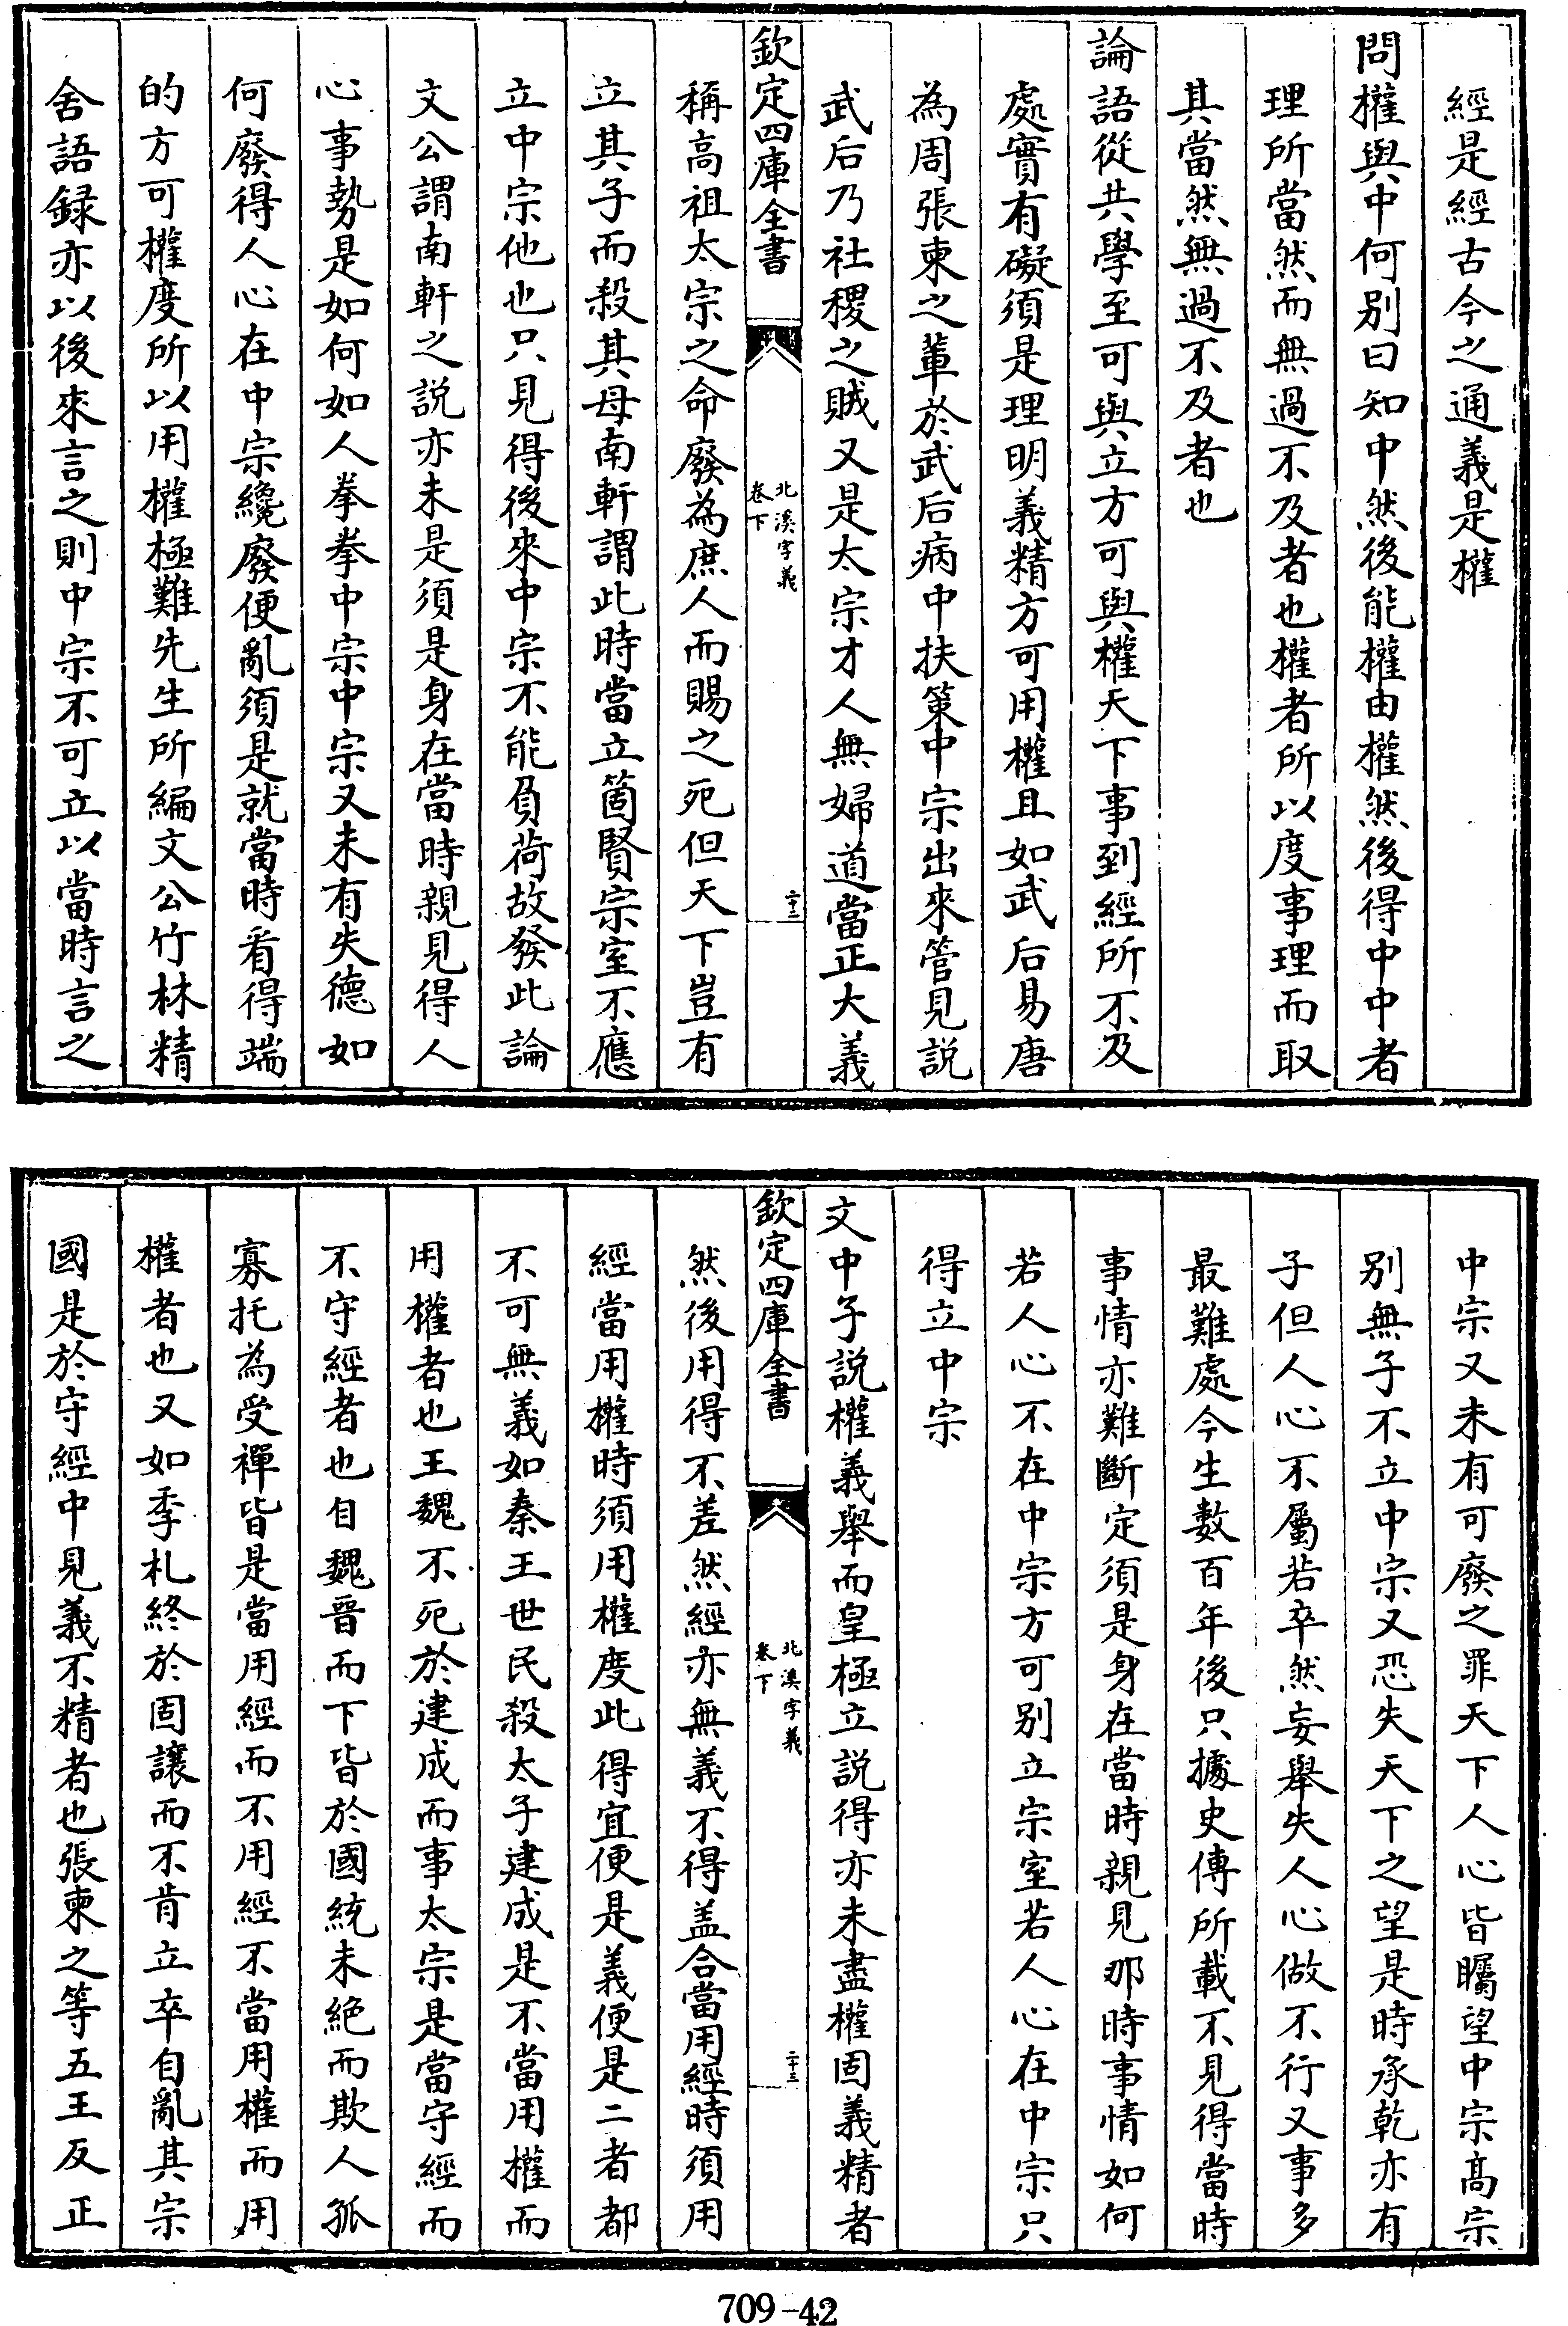 經是經古今之通義是權
問權與中何别曰知中然後能權由權然後得中中者
理所當然而無過不及者也權者所以度事理而取
其當然無過不及者也
論語從共學至可與立方可與權天下事到經所不及
處實有礙須是理明義精方可用權且如武后易唐
為周張柬之輩於武后病中扶策中宗出來管見説
武后乃社稷之賊又是太宗才人無婦道當正大義
欽定四庫全書
北溪字義
卷下
二十二
稱高祖太宗之命廢為庶人而賜之死但天下豈有
立其子而殺其母南軒謂此時當立箇賢宗室不應
立中宗他也只見得後來中宗不能負荷故發此論
文公謂南軒之説亦未是須是身在當時親見得人
心事勢是如何如人拳拳中宗中宗又未有失德如
何廢得人心在中宗纔廢便亂須是就當時看得端
的方可權度所以用權極難先生所編文公竹林精
舍語録亦以後來言之則中宗不可立以當時言之
中宗又未有可廢之罪天下人心皆矚望中宗高宗
别無子不立中宗又恐失天下之望是時承乾亦有
子但人心不屬若卒然妄舉失人心做不行又事多
最難處今生數百年後只據史傳所載不見得當時
事情亦難斷定須是身在當時親見那時事情如何
若人心不在中宗方可别立宗室若人心在中宗只
得立中宗
文中子説權義舉而皇極立説得亦未盡權固義精者
欽定四庫全書
北溪字義
卷下
二十三
然後用得不差然經亦無義不得盖合當用經時須用
經當用權時須用權度此得宜便是義便是二者都
不可無義如秦王世民殺太子建成是不當用權而
用權者也王魏不死於建成而事太宗是當守經而
不守經者也自魏晉而下皆於國統未絶而欺人孤
寡托為受禪皆是當用經而不用經不當用權而用
權者也又如季札終於固讓而不肯立卒自亂其宗
國是於守經中見義不精者也張柬之等五王反正
709-42